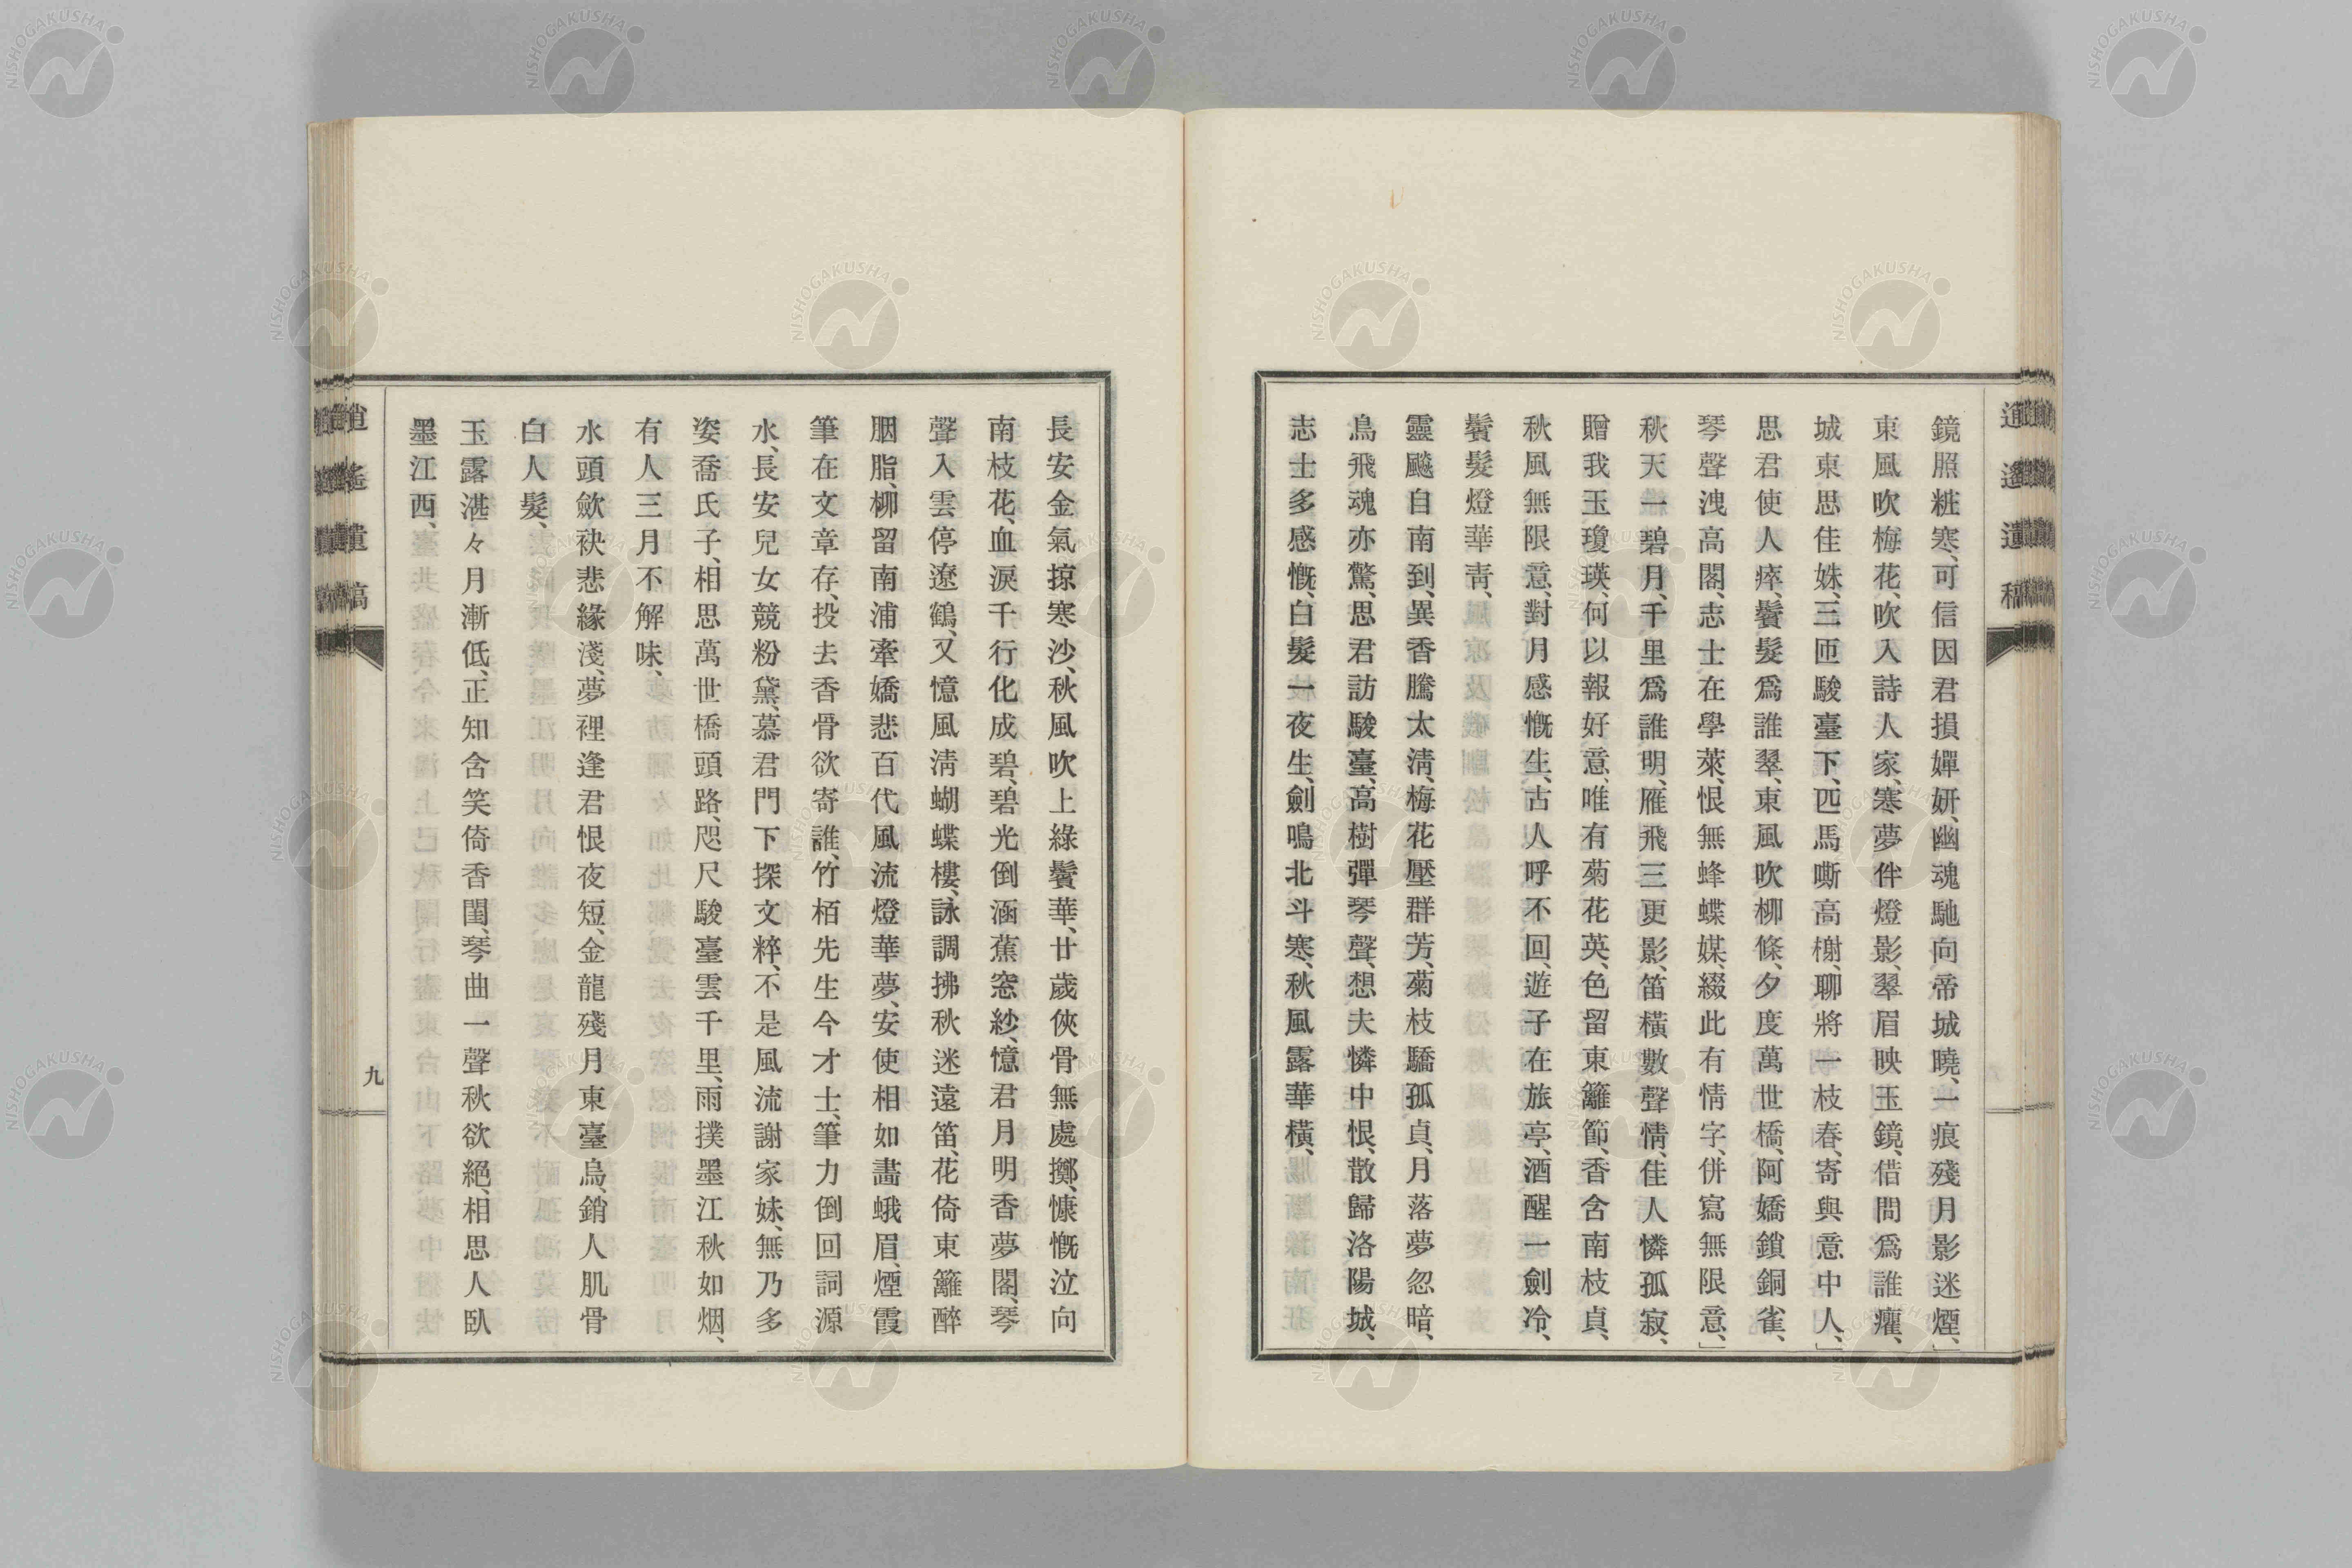 鏡照粧寒、可信因君損嬋妍、幽魂馳向帝城曉、一痕殘月影迷煙、」
東風吹梅花、吹入詩人家、寒夢伴燈影、翠眉映玉鏡、借問爲誰癯、
城東思佳姝、三匝駿臺下、匹馬嘶高榭、聊將一枝春、寄與意中人、」
思君使人瘁、鬢髮爲誰翠、東風吹柳條、夕度萬世橋、阿嬌鎖銅雀、
琴聲洩高閣、志士在學萊、恨無蜂蝶媒、綴此有情字、併寫無限意、」
秋天一碧月、千里爲誰明、雁飛三更影、笛橫數聲情、佳人憐孤寂、
贈我玉瓊瑛、何以報好意、唯有菊花英、色留東籬節、香含南枝貞、
秋風無限意、對月感慨生、古人呼不回、遊子在旅亭、酒醒一劍冷、
鬢髮燈華靑、
靈飈自南到、異香騰太淸、梅花壓群芳、菊枝驕孤貞、月落夢忽暗、
鳥飛魂亦驚、思君訪駿臺、高樹彈琴聲、想夫憐中恨、散歸洛陽城、
志士多感慨、白髮一夜生、劍鳴北斗寒、秋風露華橫、
長安金氣掠寒沙、秋風吹上綠鬢華、廿歲俠骨無處擲、慷慨泣向
南枝花、血淚千行化成碧、碧光倒涵蕉窓紗、憶君月明香夢閣、琴
聲入雲停遼鶴、又憶風淸蝴蝶樓、詠調拂秋迷遠笛、花倚東籬醉
胭脂、柳留南浦牽嬌悲、百代風流燈華夢、安使相如畵蛾眉、煙霞
筆在文章存、投去香骨欲寄誰、竹栢先生今才士、筆力倒回詞源
水、長安兒女競粉黛、慕君門下探文粹、不是風流謝家妹、無乃多
姿喬氏子、相思萬世橋頭路、咫尺駿臺雲千里、雨撲墨江秋如烟、
有人三月不解味、
水頭歛袂悲緣淺、夢裡逢君恨夜短、金龍殘月東臺烏、銷人肌骨
白人髮、
玉露湛々月漸低、正知含笑倚香閨、琴曲一聲秋欲絕、相思人臥
墨江西、
逍遙遺稿
九
逍遙遺稿
NISHOGAKUSHA